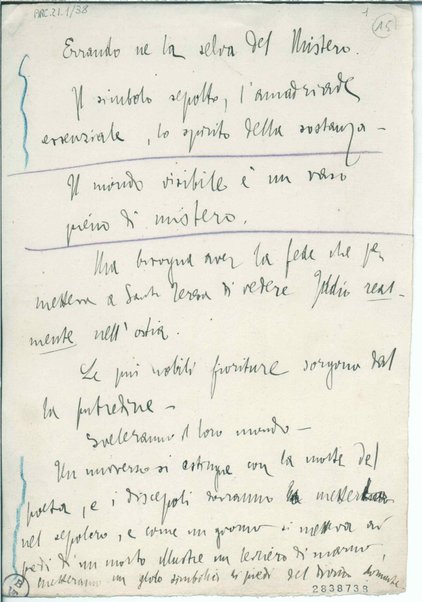 ARC.21.1/38
1
15
Errando ne la selva del Mistero.
Il simbolo sepolto, l'amadriade
essenziale, lo spirito della sostanza –
Il mondo visibile è un vaso
pieno di mistero.
Ma bisogna aver la fede che per
metteva a Santa Teresa di vedere Iddio real-
mente nell'ostia.
Le più nobili fioriture sorgono dal
la putredine –
Sveleranno il loro mondo –
Un universo si estingue con la morte del
poeta, e i discepoli dovranno metter
nel sepolcro, e come un giorno si metteva ai
piedi di un morto illustre un levriero di marmo,
metteranno un globo simbolico ai piedi del
2838738